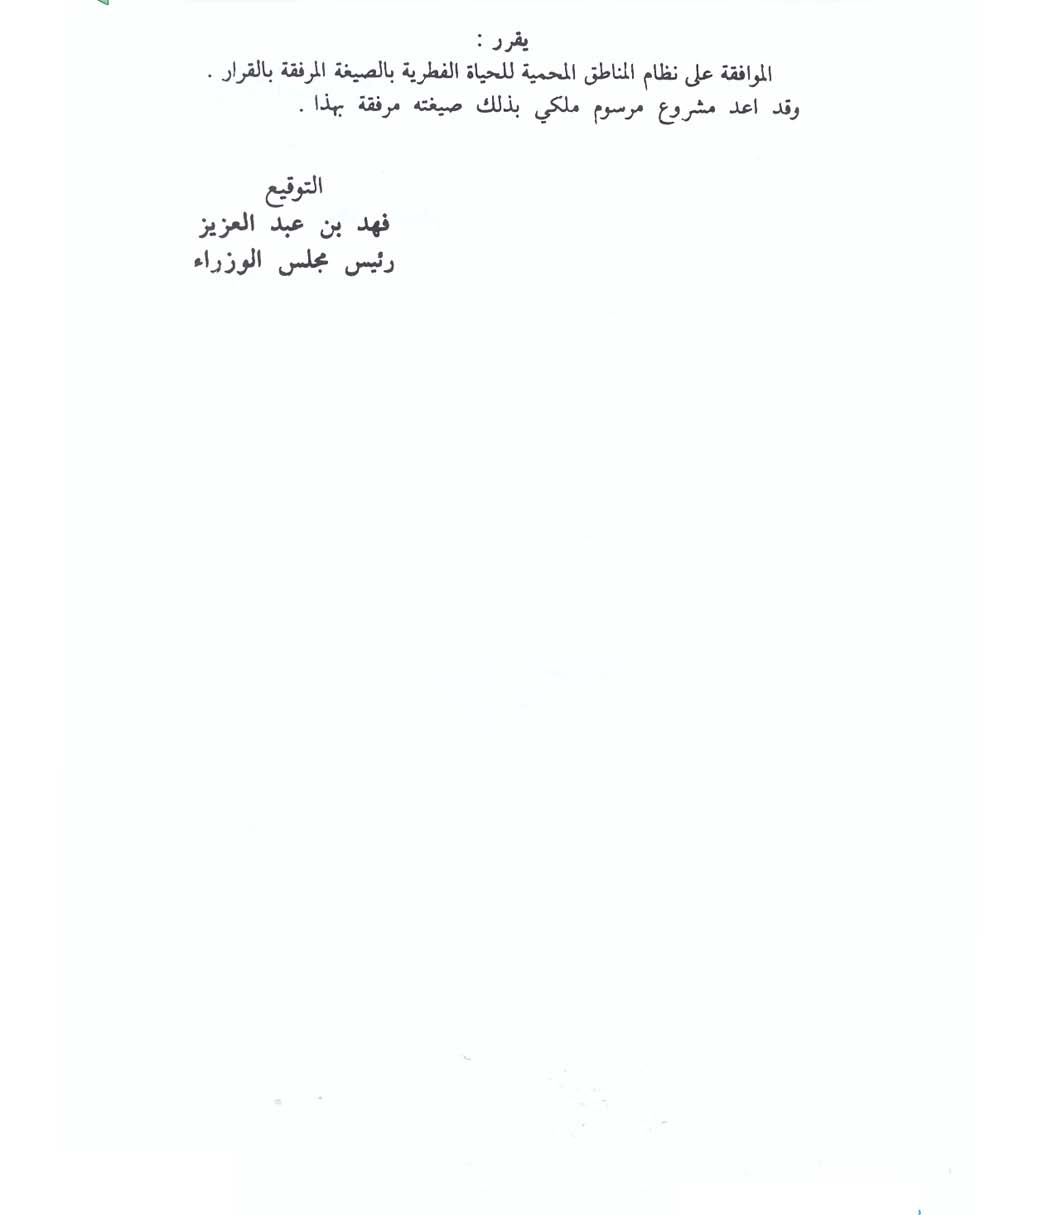 يقرر :
الموافقة على نظام المناطق المحمية للحياة الفطرية بالصيغة المرفقة بالقرار .
وقد اعد مشروع مرسوم ملكي بذلك صيغته مرفقة بهذا .
التوقيع
فهد بن عبد العزيز
رئيس مجلس الوزراء